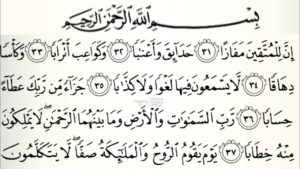 بِسْمِ اللَّهِ الرَّحْمَٰنِ الرَّحِيمِ
إِنَّ لِلْمُتَّقِينَ مَفَازًا ٣١ حَدَائِقَ وَأَعْنَابًا ٣٢ وَكَوَاعِبَ أَتْرَابًا ٣٣ وَكَأْسًا
دِهَاقًا ٣٤ لَا يَسْمَعُونَ فِيهَا لَغْوًا وَلَا كِذَّابًا ٣٥ جَزَاءً مِنْ رَبِّكَ عَطَاءً
حِسَابًا ٣٦ رَبِّ السَّمَٰوَٰتِ وَالْأَرْضِ وَمَا بَيْنَهُمَا الرَّحْمَٰنِ لَا يَمْلِكُونَ
مِنْهُ خِطَابًا ٣٧ يَوْمَ يَقُومُ الرُّوحُ وَالْمَلَٰئِكَةُ صَفًّا لَا يَتَكَلَّمُونَ